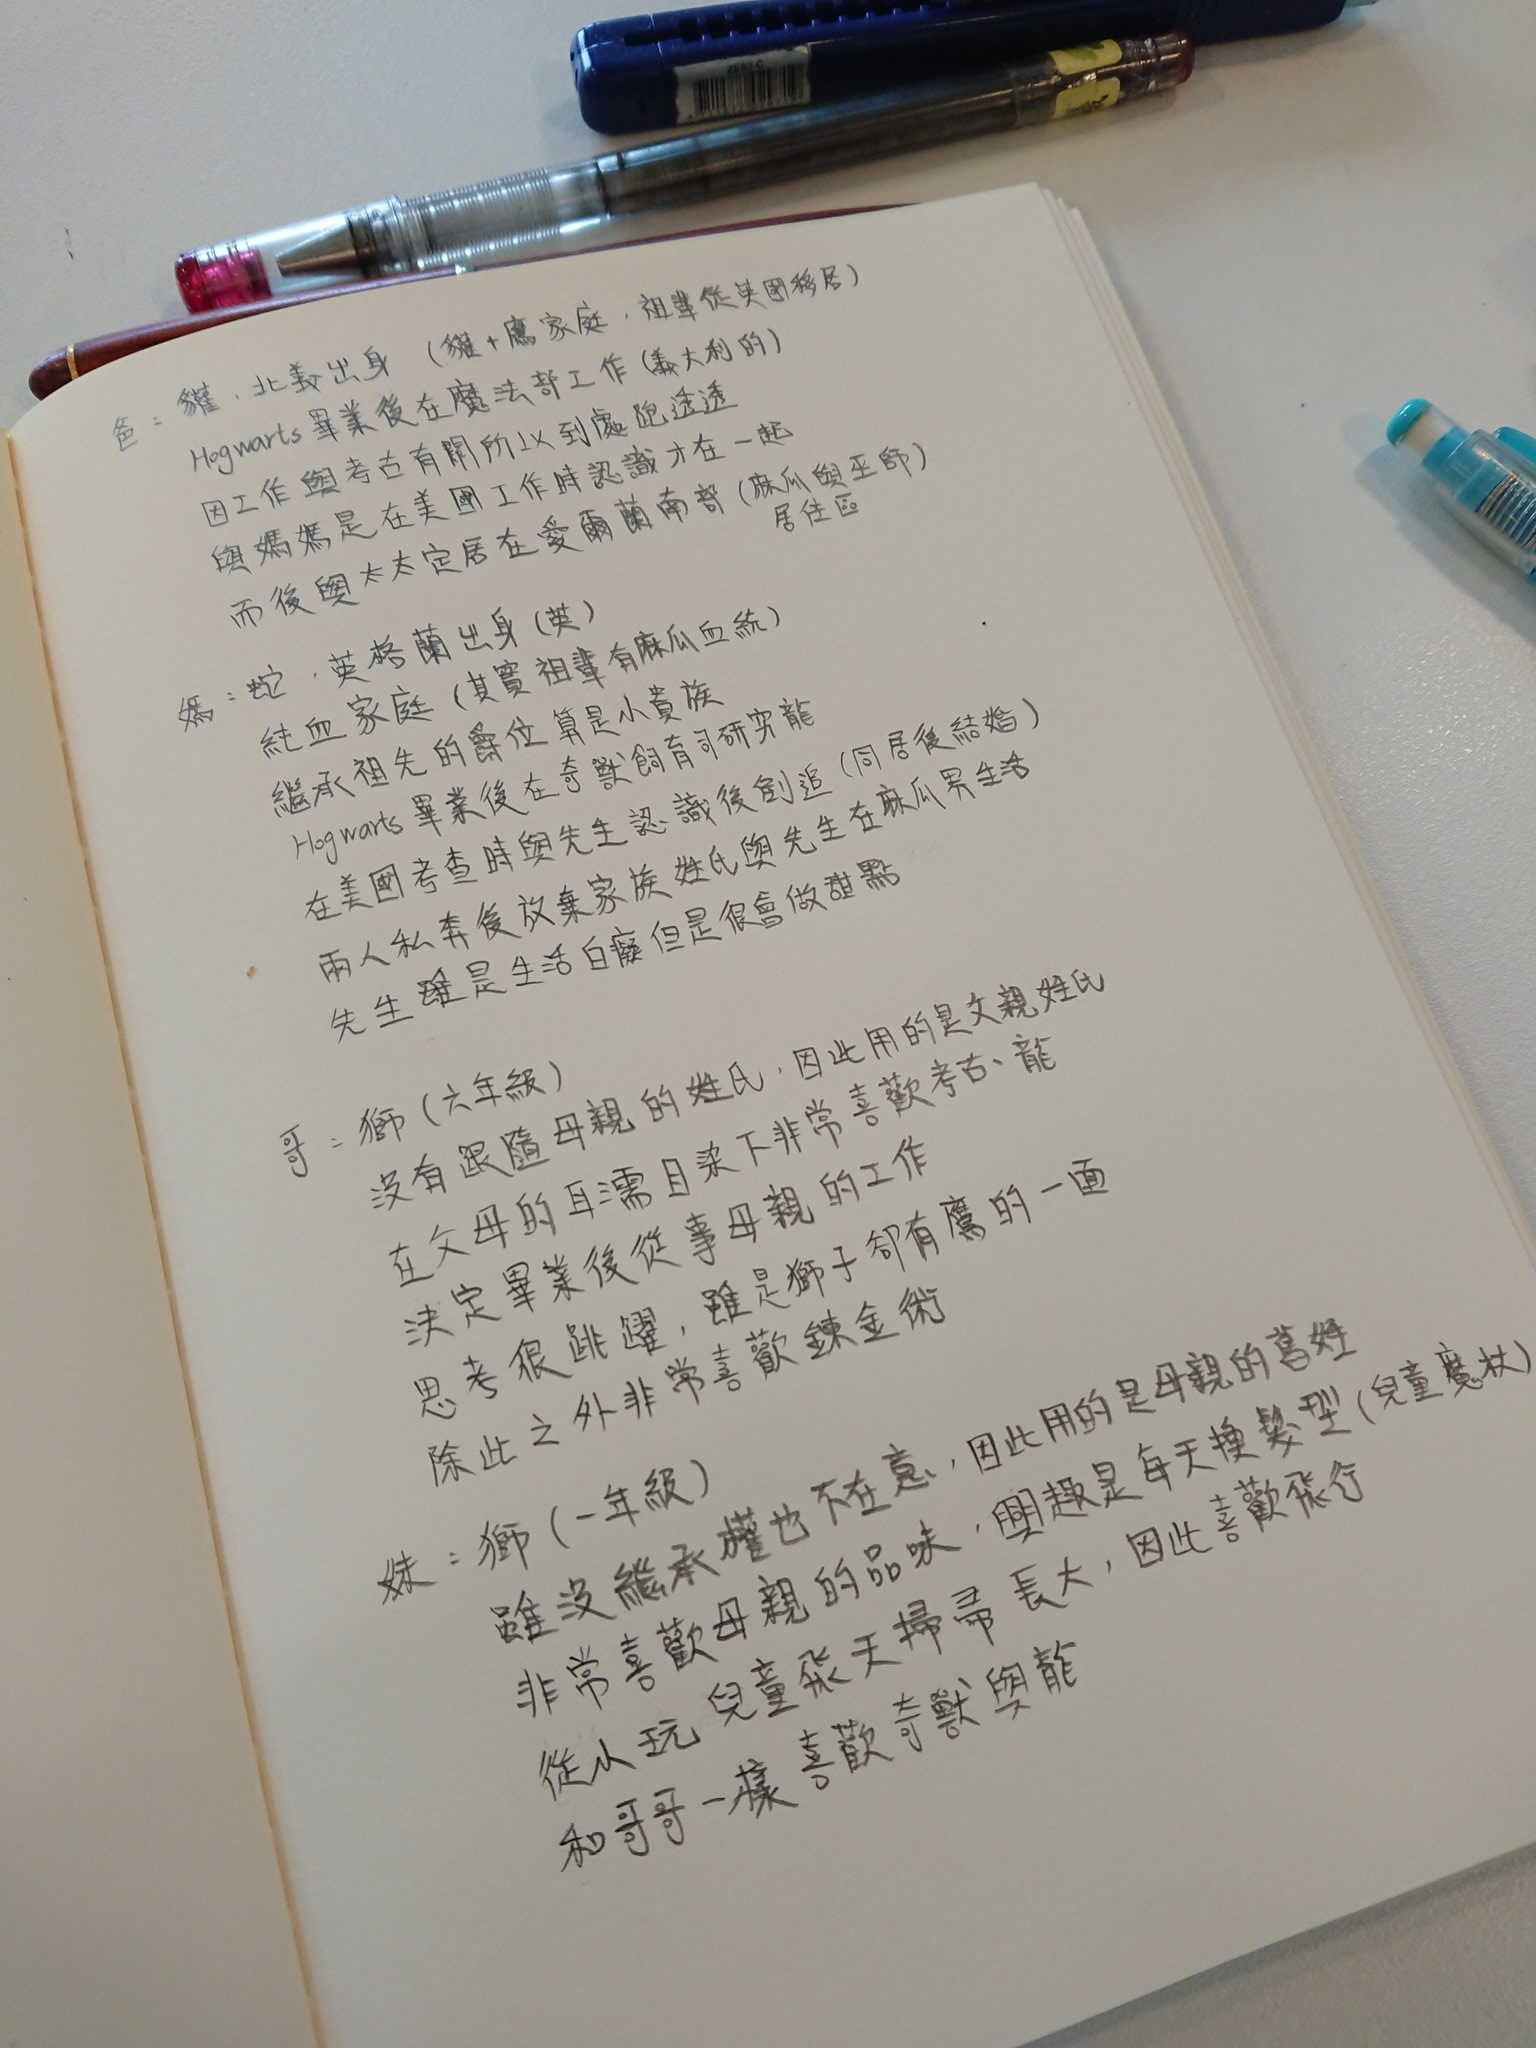 ZE80-C
爸：獾，北義出身（獾+鷹家庭，祖輩從英國移居）
Hogwarts畢業後在魔法部工作（義大利的）
因工作與考古有關所以到處跑透透
與媽媽是在美國工作時認識才在一起
而後與太太定居在愛爾蘭南部（麻瓜與巫師）
居住區
媽：蛇，英格蘭出身（英）
純血家庭（其實祖輩有麻瓜血統）
繼承祖先的爵位算是小貴族
Hogwarts畢業後在奇獸飼育司研究龍
在美國考查時與先生認識後倒追（同居後結婚）
兩人私奔後放棄家族姓氏與先生在麻瓜界生活
先生雖是生活白癡但是很會做甜點
哥：獅（六年級）
沒有跟隨母親的姓氏，因此用的是父親姓氏
在父母的耳濡目染下非常喜歡考古、龍
決定畢業後從事母親的工作
思考很跳躍，雖是獅子卻有鷹的一面
除此之外非常喜歡鍊金術
妹：獅（一年級）
雖沒繼承權也不在意，因此用的是母親的舊姓
非常喜歡母親的品味，興趣是每天換髮型（兒童魔杖）
從小玩兒童飛天掃帚長大，因此喜歡飛行
和哥哥一樣喜歡奇獸與龍